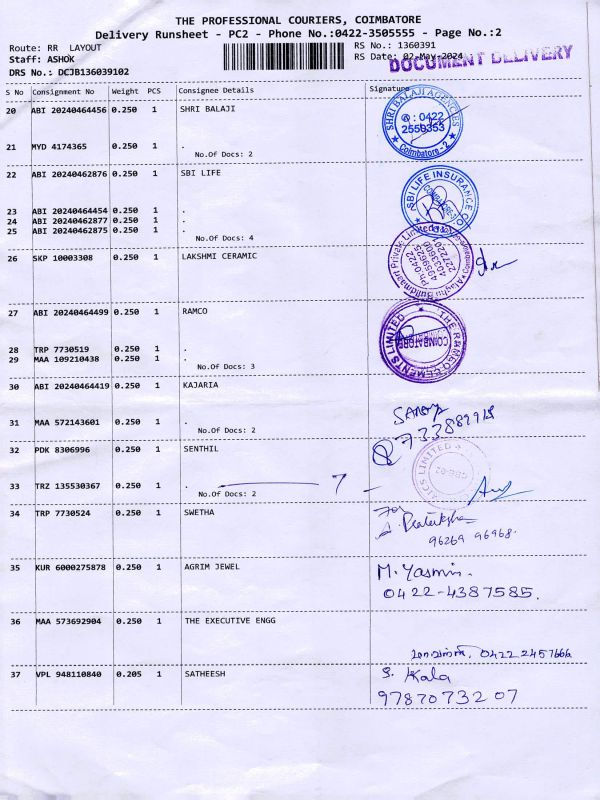 THE PROFESSIONAL COURIERS, COIMBATORE
Delivery Runsheet - PC2 - Phone No.:0422-3505555 - Page No.:2
Route: RR LAYOUT RS No.: 1360391
Staff: ASHOK RS Date: 02-May-2024
DOCUMENT DELIVERY
DRS No.: DCJB136039102
S No Consignment No Weight PCS Consignee Details Signature
20 ABI 20240464456 0.250 1 SHRI BALAJI
SHRI BALAJI AGENCIES
✆ : 0422
2550353
Coimbatore - 2
21 MYD 4174365 0.250 1 .
No.Of Docs: 2
22 ABI 20240462876 0.250 1 SBI LIFE
SBI LIFE INSURANCE CO.
23 ABI 20240464454 0.250 1 .
24 ABI 20240462877 0.250 1 .
25 ABI 20240462875 0.250 1 .
No.Of Docs: 4
26 SKP 10003308 0.250 1 LAKSHMI CERAMIC
Buildmaart Private Limited
Ph:0422
4959625
4033600
2272220
27 ABI 20240464499 0.250 1 RAMCO
THE RAMCO CEMENTS LIMITED
COIMBATORE
28 TRP 7730519 0.250 1 .
29 MAA 109210438 0.250 1 .
No.Of Docs: 3
30 ABI 20240464419 0.250 1 KAJARIA
31 MAA 572143601 0.250 1 .
No.Of Docs: 2
32 PDK 8306996 0.250 1 SENTHIL
33 TRZ 135530367 0.250 1 .
No.Of Docs: 2
34 TRP 7730524 0.250 1 SWETHA
For
96269 96968.
35 KUR 6000275878 0.250 1 AGRIM JEWEL
M. Yasmin.
0422-4387585.
36 MAA 573692904 0.250 1 THE EXECUTIVE ENGG
0422 2457666
37 VPL 948110840 0.205 1 SATHEESH
S. Kala
9787073207